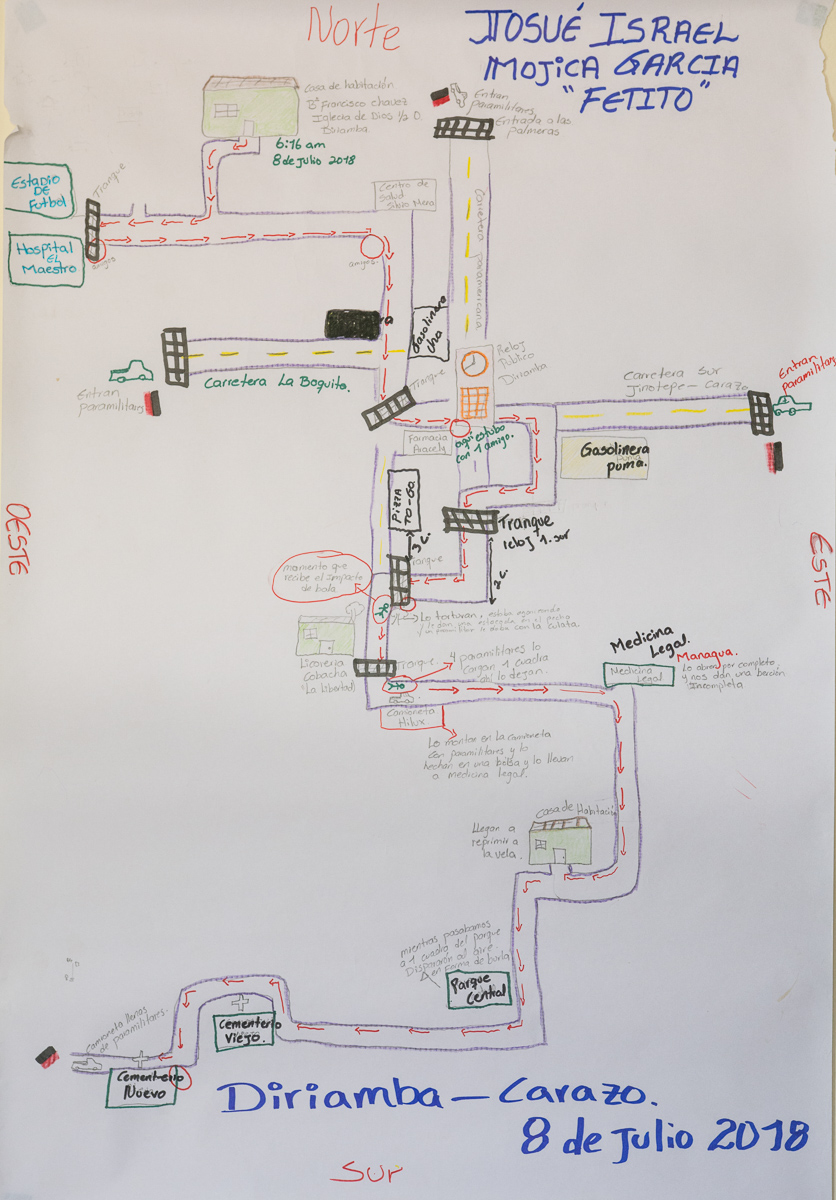 Norte
JJOSUÉ ISRAEL
MOJICA GARCIA
"FETITO"
Casa de habitación
Francisco Chavez
Iglecia de Dios 1/2 O.
Diriamba.
6:16 am
8 de julio 2018
Entran
paramilitares
Entrada a las
palmeras
Estadio
DE
Futbol
Tranque
Hospital
EL
Maestro
amigos
Centro de
Salud
Silvio Mena
amigos.
Carretera panamericana
Gasolinera
Uno
Reloj
Público
Diriamba
Carretera Sur
Jinotepe - Carazo
Entran
paramilitares
Entran
paramilitars
Carretera La Boquita.
Tranque
Farmacia
Aracely
aqui estubo
con 1 amigo.
Gasolinera
puma.
PIZZA
TO-GO
3 c.
Tranque
reloj 1. sur
2 c.
OESTE
ESTE
momento que
recibe el impacto
de bala
Tranque
Lo torturan, estaba agonizando
y le dan una estocada en el pecho
y un paramilitar le pega con la culata
Licoreria
Cobacha
(La libertad)
Tranque
4 paramilitares lo
cargan 1 cuadra
ahí lo dejan.
Camioneta
Hilux
Lo montan en la camioneta
con paramilitares y lo
hechan en una bolsa y lo llevan
a medicina legal.
Medicina
Legal.
Managua.
Medicina
Legal
Lo abren por completo
y nos dan una berción
Incompleta
Casa de Habitación
Llegan a
reprimir a
la vela.
mientras pasabamos
a 1 cuadra del parque
Dispararon al aire
en forma de burla
Parque
Central
Cementerio
Viejo.
Camioneta llenas
de paramilitares.
Cementerio
Nuevo
Diriamba - Carazo.
8 de julio 2018
Sur